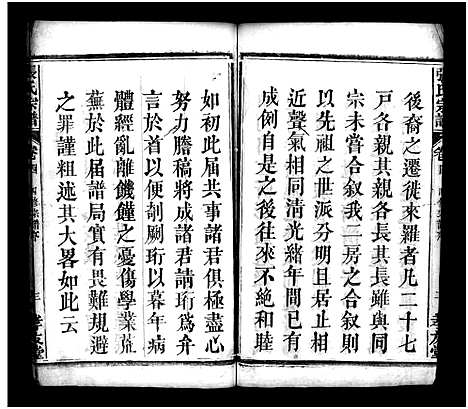 後裔之遷徙來羅者凡二十七
戸各親其親各長其長雖與同
宗未嘗合叙我二房之合叙則
以先祖之世派分明且居止相
近聲氣相同清光緒年間已有
成例自是之後往來不衰歡洽
如初此届共事諸君俱極盡心
努力謄稿將成諸君請珩爲弁
言於首以便剞劂珩以暮年病
體經亂離饑饉之憂傷學業荒
蕪於此届譜局實有畏難規避
之罪謹粗述其大畧如此云
張氏宗譜
卷四
孝友堂